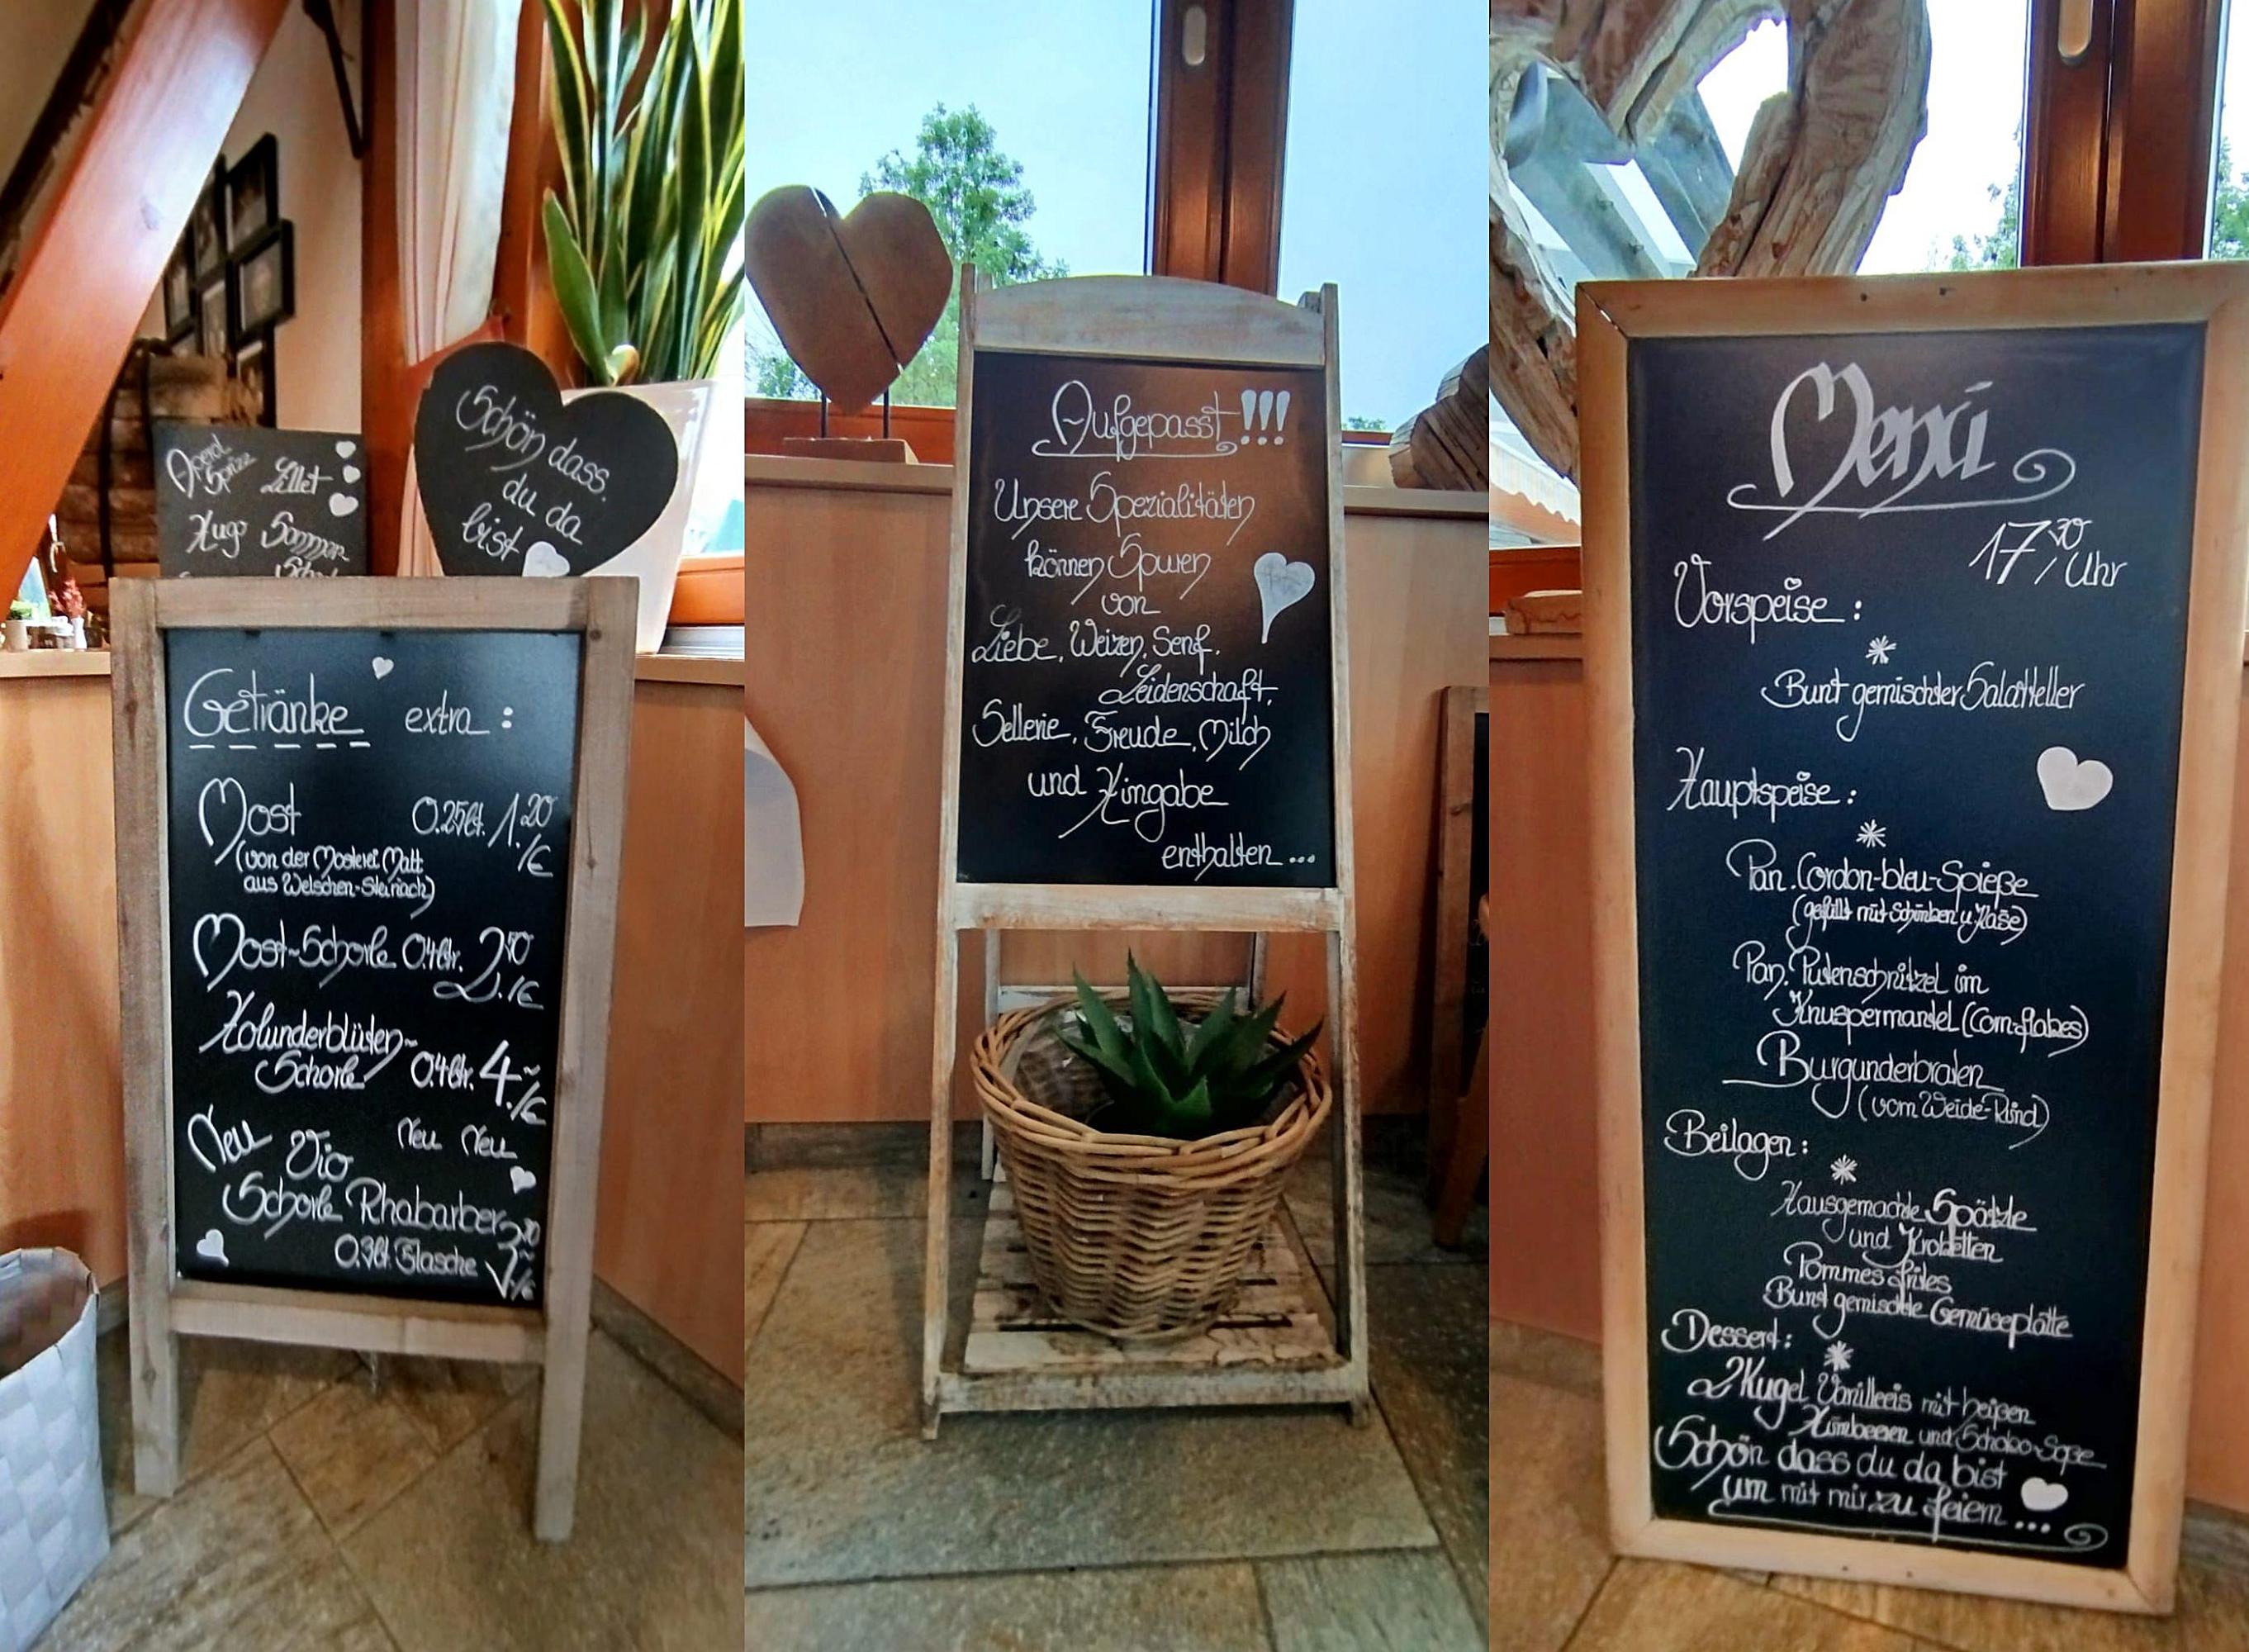 Aperol
Spritz Lillet
Hugo Sommer
Schön dass
du da
bist
Getränke extra :
Most 0.25lt. 1.20/€
(von der Mosterei Matt
aus Welschen-Steinach)
Most-Schorle 0.4ltr. 2.50/€
Holunderblüten-
Schorle 0.4ltr. 4.-/€
Neu Neu Neu
Vio
Schorle Rhabarber
0.3lt. Flasche
Aufgepasst!!!
Unsere Spezialitäten
können Spuren
von
Liebe, Weizen, Senf,
Leidenschaft,
Sellerie, Freude, Milch
und Hingabe
enthalten...
Menü
17 30/Uhr
Vorspeise :
Bunt gemischter Salatteller
Hauptspeise :
Pan. Cordon-bleu-Spieße
(gefüllt mit Schinken u. Käse)
Pan. Putenschnitzel im
Knuspermantel (Corn-flakes)
Burgunderbraten
(vom Weide-Rind)
Beilagen :
Hausgemachte Spätzle
und Kroketten
Pommes frites
Bunt gemischte Gemüseplatte
Dessert :
2 Kugel Vanilleeis mit heißen
Himbeeren und Schoko-Soße
Schön dass du da bist
um mit mir zu feiern ...